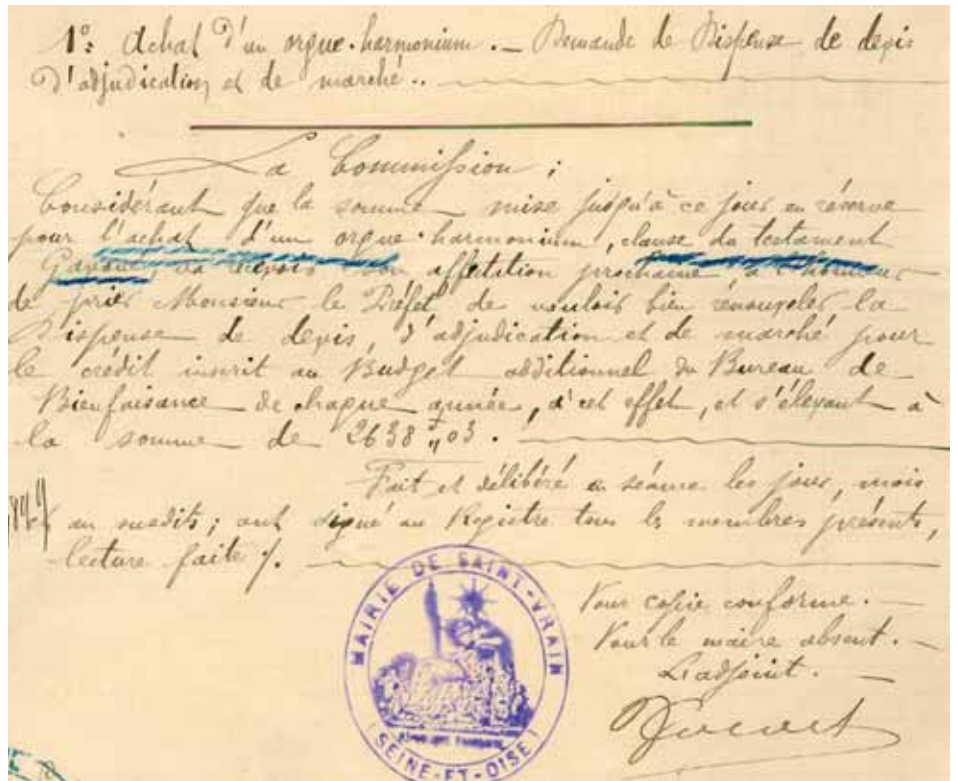 1º: Achat d'un orgue-harmonium. — Demande de Dispense de devis
d'adjudication et de marché..
La Commission;
Considérant que la somme mise jusqu'à ce jour en réserve
pour l'achat d'un orgue-harmonium, clause du testament
va recevoir son prochaine à l'honneur
de prier Monsieur le Préfet de vouloir bien renouveler la
Dispense de devis, d'adjudication et de marché pour
le crédit inscrit au Budget additionnel du Bureau de
Bienfaisance de chaque année, à cet effet, et s'élevant à
la somme de 2638 f,,03.
Fait et délibéré en séance les jour, mois
et an susdits; ont signé au Registre tous les membres présents,
lecture faite /.
MAIRIE DE SAINT-VRAIN
(SEINE-ET-OISE)
Pour copie conforme. —
Pour le maire absent. —
L'adjoint. —